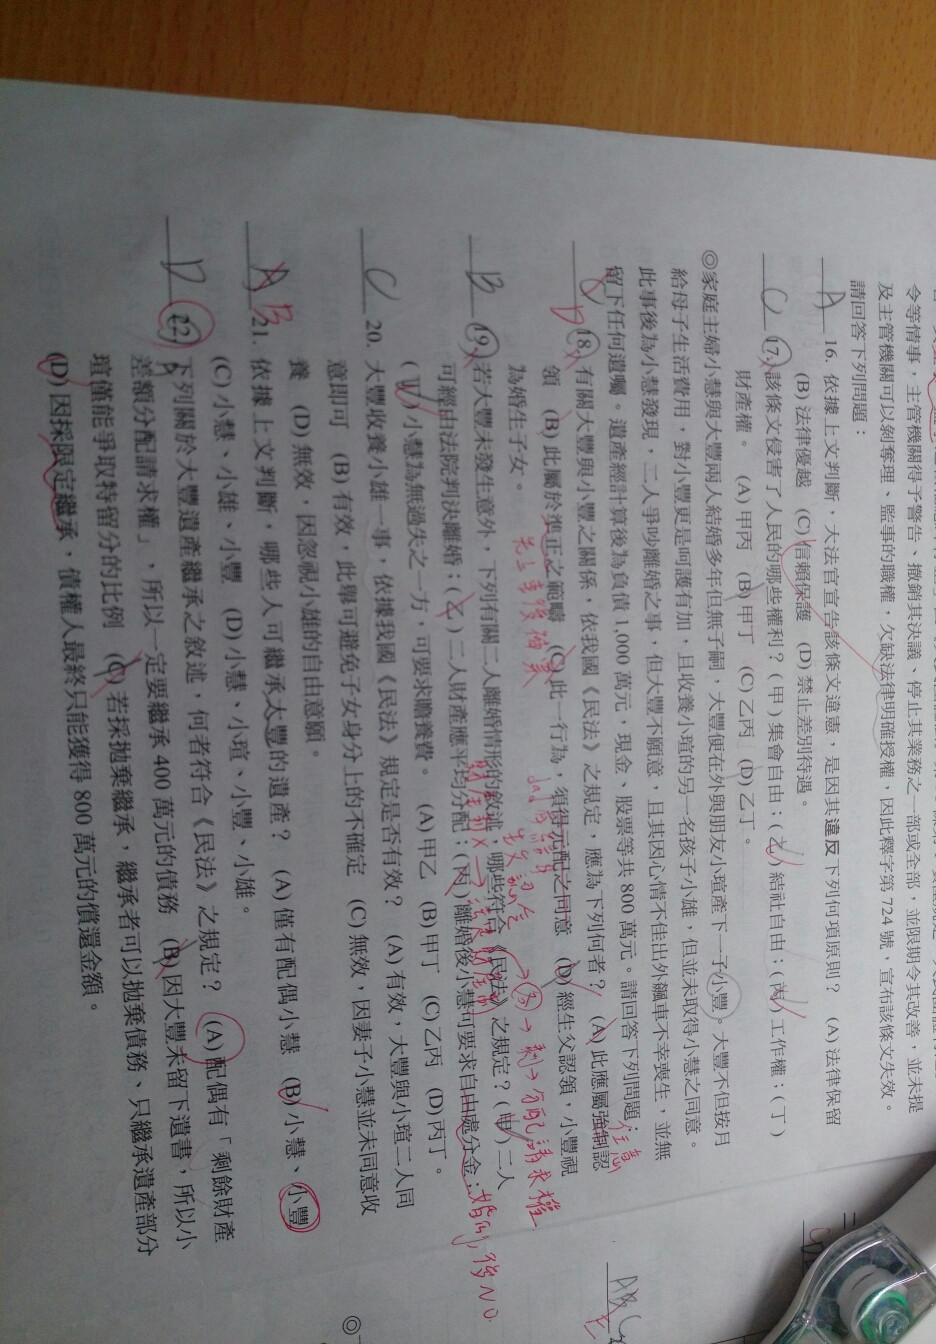 令等情事，主管機關得予警告、撤銷其決議、停止其業務之一部或全部，並限期令其改善，並未提
及主管機關可以剝奪理、監事的職權，欠缺法律明確授權，因此釋字第 724 號，宣布該條文失效。
請回答下列問題：
A 16. 依據上文判斷，大法官宣告該條文違憲，是因其違反下列何項原則？ (A) 法律保留
(B) 法律優越 (C) 信賴保護 (D) 禁止差別待遇。
C 17. 該條文侵害了人民的哪些權利？(甲) 集會自由；(乙) 結社自由；(丙) 工作權；(丁)
財產權。 (A) 甲丙 (B) 甲丁 (C) 乙丙 (D) 乙丁。
◎家庭主婦小慧與大豐兩人結婚多年但無子嗣，大豐便在外與朋友小瑄產下一子小豐。大豐不但按月
給母子生活費用，對小豐更是呵護有加，且收養小瑄的另一名孩子小雄，但並未取得小慧之同意。
此事後為小慧發現，二人爭吵離婚之事，但大豐不願意，且其因心情不佳出外飆車不幸喪生，並無
留下任何遺囑。遺產經計算後為負債 1,000 萬元，現金、股票等共 800 萬元。請回答下列問題：
D 18. 有關大豐與小豐之關係，依我國《民法》之規定，應為下列何者？ (A) 此應屬強制認
領 (B) 此屬於準正之範疇 (C) 此一行為，須得元配之同意 (D) 經生父認領，小豐視
為婚生子女。
生父認領
B 19. 若大豐未發生意外，下列有關二人離婚情形的敘述，哪些符合《民法》之規定？(甲) 二人
可經由法院判決離婚；(乙) 二人財產應平均分配；(丙) 離婚後小慧可要求自由處分金；
(丁) 小慧為無過失之一方，可要求贍養費。 (A) 甲乙 (B) 甲丁 (C) 乙丙 (D) 丙丁。
C 20. 大豐收養小雄一事，依據我國《民法》規定是否有效？ (A) 有效，大豐與小瑄二人同
意即可 (B) 有效，此舉可避免子女身分上的不確定 (C) 無效，因妻子小慧並未同意收
養 (D) 無效，因忽視小雄的自由意願。
A B 21. 依據上文判斷，哪些人可繼承大豐的遺產？ (A) 僅有配偶小慧 (B) 小慧、小豐
(C) 小慧、小雄、小豐 (D) 小慧、小瑄、小豐、小雄。
D 22. 下列關於大豐遺產繼承之敘述，何者符合《民法》之規定？ (A) 配偶有「剩餘財產
差額分配請求權」，所以一定要繼承 400 萬元的債務 (B) 因大豐未留下遺書，所以小
瑄僅能爭取特留分的比例 (C) 若採拋棄繼承，繼承者可以拋棄債務、只繼承遺產部分
(D) 因採限定繼承，債權人最終只能獲得 800 萬元的償還金額。